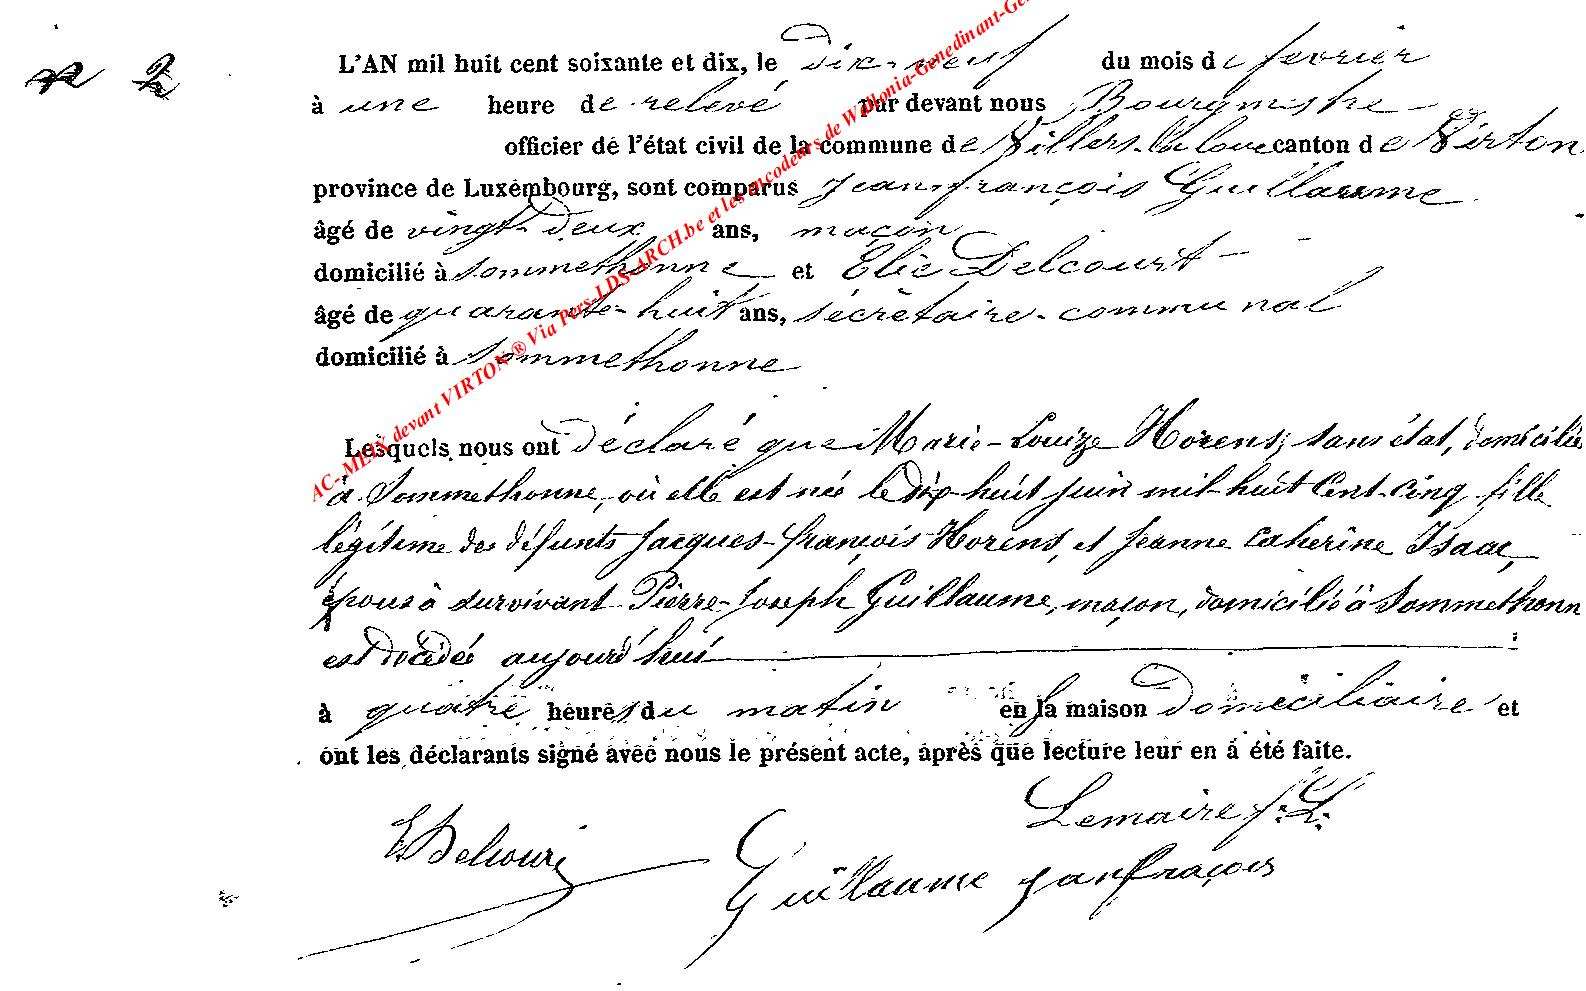 n 2
L'AN mil huit cent soixante et dix, le dix-neuf du mois de fevrier
à une heure de relevé par devant nous Bourgmestre
officier de l'état civil de la commune de Villers-la-loue canton de Virton
province de Luxembourg, sont comparus Jean françois Guillaume
âgé de vingt-deux ans, maçon
domicilié à Sommethonne et Élie Delcourt
âgé de quarante-huit ans, sécrétaire-communal
domicilié à Sommethonne
AC-MEIX devant VIRTON ® Via Pers-LDS-ARCH.be et les encodeurs de Wallonia-Genedinant-Gen
Lesquels nous ont déclaré que Marie-Louize Horens, sans état, domiciliée
à Sommethonne, où elle est née le dix-huit juin mil-huit Cent-Cinq fille
légitime des défunts Jacques-françois Horens, et Jeanne Catherine Isaac,
épousé survivant Pierre-Joseph Guillaume, maçon, domicilié à Sommethonn
est décédée aujourd'hui
à quatre heures du matin en sa maison domiciliaire et
ont les déclarants signé avec nous le présent acte, après que lecture leur en a été faite.
Lemaire
E Delcourt
Guillaume janfraçois